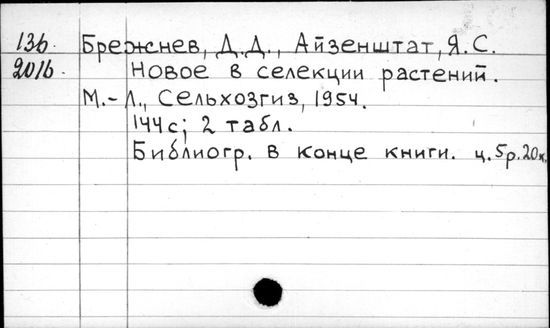 136. Брежнев, Д.Д., Айзенштат, Я.С.
2016. Новое в селекции растений.
М.-Л., Сельхозгиз, 1954.
144с; 2 табл.
Библиогр. в конце книги. ц. 5р.20к.